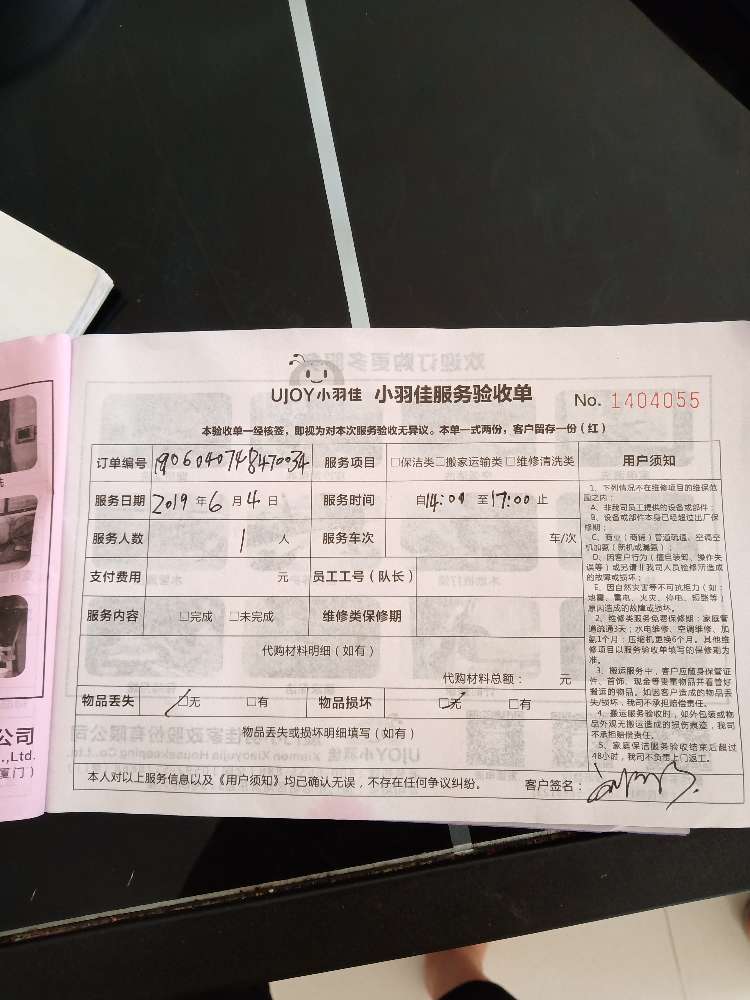 UJOY小羽佳 小羽佳服务验收单 No. 1404055
本验收单一经核签，即视为对本次服务验收无异议。本单一式两份，客户留存一份（红）
订单编号 1906040748470034 服务项目 □保洁类□搬家运输类□维修清洗类
服务日期 2019年6月4日 服务时间 自14:00至17:00止
服务人数 1人 服务车次 车/次
支付费用 元 员工工号（队长）
服务内容 □完成 □未完成 维修类保修期
代购材料明细（如有）
代购材料总额： 元
物品丢失 □无 □有 物品损坏 □无 □有
物品丢失或损坏明细填写（如有）
本人对以上服务信息以及《用户须知》均已确认无误，不存在任何争议纠纷。 客户签名：
用户须知
1、下列情况不在维修项目的维保范
围之内：
A、非我司员工提供的设备或部件；
B、设备或部件本身已经超过出厂保
修期；
C、商业（商铺）管道疏通、空调空
机加氨（新机或漏氨）；
D、因客户行为（擅自装卸、操作失
误等）或另请非我司人员检修所造成
的故障或损坏；
E、因自然灾害等不可抗拒力（如：
地震、雷电、火灾、停电、短路等）
原因造成的故障或损坏。
2、检修类服务免费保修期：家庭管
道疏通3天；水电维修、空调维修、加
氨1个月；压缩机更换6个月。其他维
修项目以服务验收单填写的保修期为
准。
3、搬运服务中，客户应随身保管证
件、首饰、现金等贵重物品并看管好
搬运的物品。如因客户造成的物品丢
失/损坏，我司不承担赔偿责任。
4、搬运服务验收时，如外包装或物
品外观无搬运造成的损伤痕迹，我司
不承担赔偿责任。
5、家庭保洁服务验收结束后超过
48小时，我司不负责上门返工。
公司
.,Ltd.
厦门）